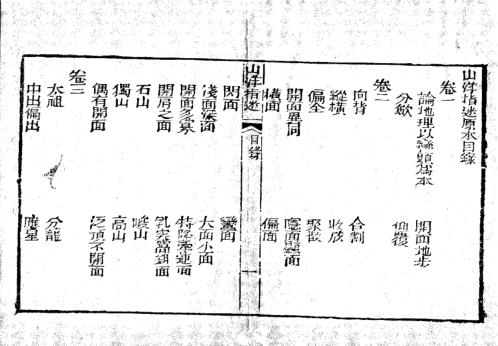 山洋指迷原本目錄
卷一
論地理以巒頭為本 開面地步
分斂 仰覆
卷二
向背 合割
縱橫 收放
偏全 聚散
開面異同 隱面顯面
橫面 偏面
山洋指迷 目錄 一
閃面
淺面深面 大面小面
開面多寡 特降牽連面
開肩之面
石山 峻山
獨山 高山
偶有開面 泛頂不開面
卷三
太祖 分龍
中出偏出 應星